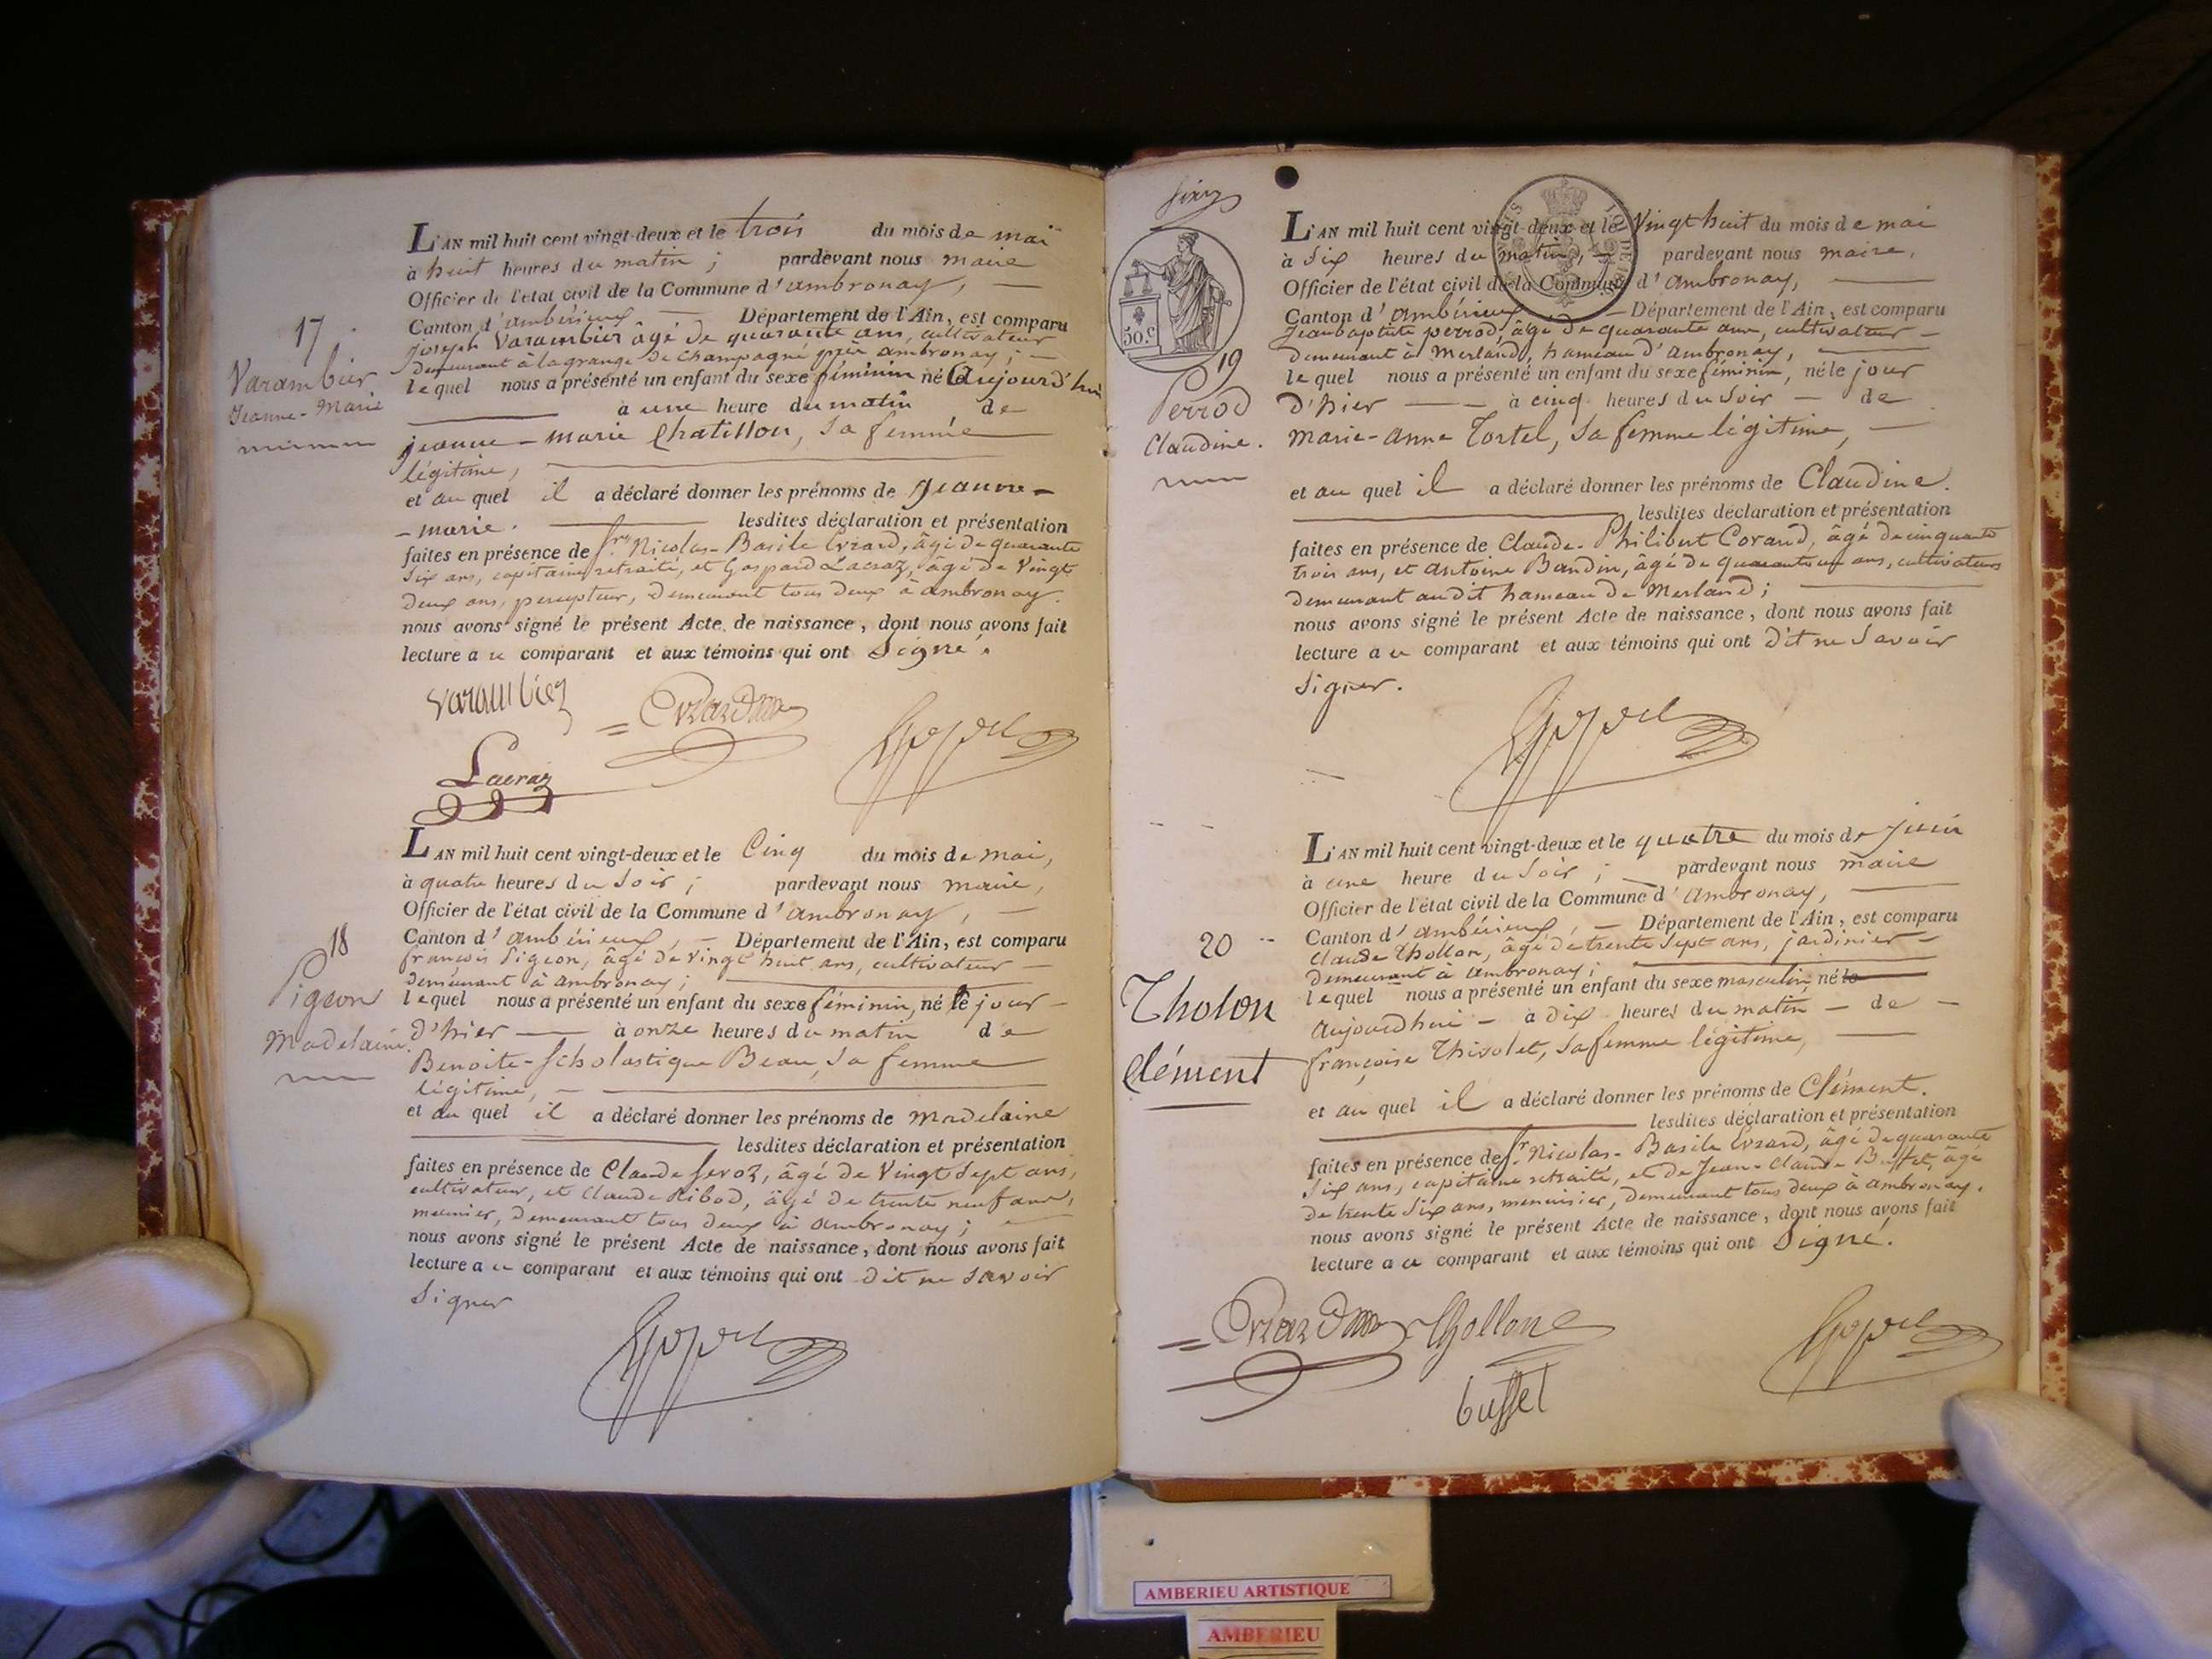 L'AN mil huit cent vingt-deux et le trois du mois de mai
à huit heures du matin ; pardevant nous maire
Officier de l'etat civil de la Commune d'ambronay, —
Canton d'ambérieux — Département de l'Ain, est comparu
joseph Varambier âgé de quarante ans, cultivateur
demeurant à la grange de Champagne près ambronay ; —
lequel nous a présenté un enfant du sexe féminin né aujourd'hui
à une heure du matin de
jeanne-marie Chatillon, sa femme
légitime,
et au quel il a déclaré donner les prénoms de Jeanne-
-marie. lesdites déclaration et présentation
faites en présence de Nicolas-Basile Evrard, âgé de quarante
six ans, capitaine retraité, et Gaspard Lacraz, âgé de Vingt
deux ans, percepteur, demeurant tous deux à ambronay.
nous avons signé le présent Acte de naissance, dont nous avons fait
lecture a ce comparant et aux témoins qui ont Signé.
17.
Varambier
Jeanne-Marie
varambier
Evrard
Lacraz
L'AN mil huit cent vingt-deux et le Cinq du mois de mai,
à quatre heures du Soir ; pardevant nous maire,
Officier de l'état civil de la Commune d'ambronay, —
Canton d'ambérieux, — Département de l'Ain, est comparu
françois Pigeon, âgé de vingt huit ans, cultivateur —
demeurant à ambronay ;
lequel nous a présenté un enfant du sexe féminin, né le jour —
d'hier — à onze heures du matin de
Benoite-Scholastique Beau, sa femme
légitime, —
et au quel il a déclaré donner les prénoms de Madelaine
lesdites déclaration et présentation
faites en présence de Claude Servoz, âgé de Vingt Sept ans,
cultivateur, et Claude Ribod, âgé de trente neuf ans,
meunier, demeurant tous deux à ambronay ;
nous avons signé le présent Acte de naissance, dont nous avons fait
lecture a ce comparant et aux témoins qui ont dit ne savoir
Signer
18
Pigeon
Madelaine
L'AN mil huit cent vingt-deux et le Vingt huit du mois de mai
à Six heures du matin, — pardevant nous maire,
Officier de l'état civil de la Commune d'ambronay, —
Canton d'ambérieux — Département de l'Ain, est comparu
Jean baptiste perrod, âgé de quarante ans, cultivateur —
demeurant à Merland, hameau d'ambronay,
lequel nous a présenté un enfant du sexe féminin, né le jour
d'hier — à cinq heures du Soir — de
Marie-anne Tortel, sa femme légitime, —
et au quel il a déclaré donner les prénoms de Claudine.
lesdites déclaration et présentation
faites en présence de Claude-Philibert Corand, âgé de cinquante
trois ans, et Antoine Bandin, âgé de quarante un ans, cultivateurs
demeurant audit hameau de Merland ;
nous avons signé le présent Acte de naissance, dont nous avons fait
lecture a ce comparant et aux témoins qui ont dit ne savoir
Signer.
50.c
19
Perrod
Claudine.
L'AN mil huit cent vingt-deux et le quatre du mois de juin
à une heure du Soir ; — pardevant nous maire
Officier de l'état civil de la Commune d'ambronay,
Canton d'ambérieux, — Département de l'Ain, est comparu
Claude Thollon, âgé de trente Sept ans, jardinier —
demeurant à ambronay ;
lequel nous a présenté un enfant du sexe masculin, né le
aujourdhui — à dix heures du matin — de —
françoise Thivolet, sa femme légitime,
et au quel il a déclaré donner les prénoms de Clément.
lesdites déclaration et présentation
faites en présence de Sr. Nicolas-Basile Evrard, âgé de quarante
Six ans, capitaine retraité, et de Jean-Claude Buffet, âgé
de trente Six ans, menuisier, demeurant tous deux à ambronay.
nous avons signé le présent Acte de naissance, dont nous avons fait
lecture a ce comparant et aux témoins qui ont Signé.
20
Tholon
Clément
Evrard
Thollone
buffet
AMBERIEU ARTISTIQUE
AMBERIEU